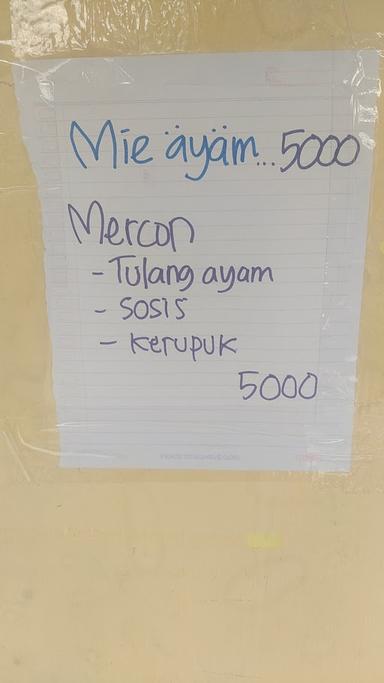 Mie äyäm...5000
Mercon
- Tulang ayam
- sosis
- kerupuk
5000